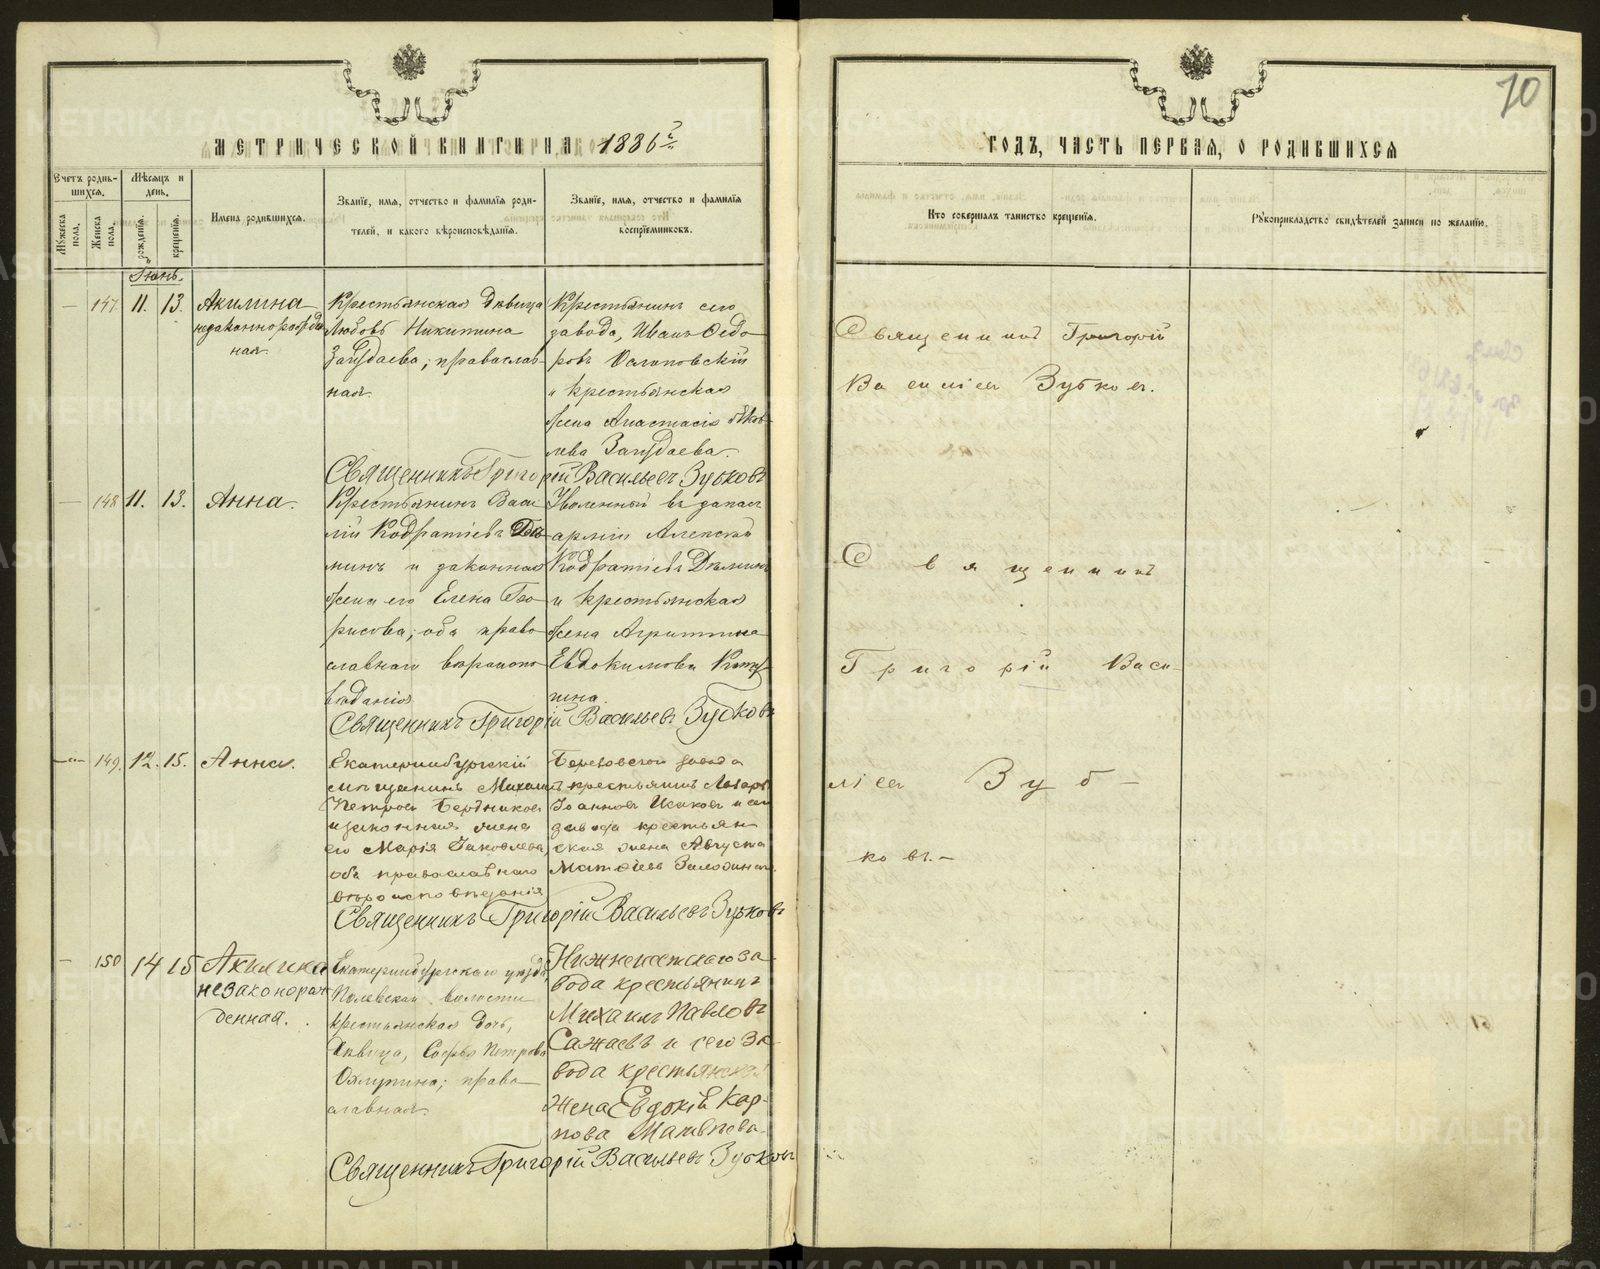 МЕТРИЧЕСКОЙ КНИГИ НА 1886 г.
Счетъ родив-
шихся.
Мѣсяцъ и
день.
Мужеска
пола.
Женска
пола.
рожденія.
крещенія.
Имена родившихся.
Званіе, имя, отчество и фамилія роди-
телей, и какого вѣроисповѣданія.
Званіе, имя, отчество и фамилія
воспріемниковъ.
Іюнь.
— 147 11. 13. Акилина
незаконнорожде
ная.
Крестьянская дѣвица
Любовь Никитина
православ-
ная.
Крестьянинъ сего
завода, Иванъ Ѳедо
ровъ
и крестьянская
жена Анастасія Яков
лева
Священникъ Григорій Васильевъ Зубковъ
— 148 11. 13. Анна.
Крестьянинъ Васи
лій Кодратіевъ Дѣ
минъ и законная
жена его Елена Бо
рисова; оба право
славнаго вѣроиспо
вѣданія
Уволенный въ запасъ
арміи Алексѣй
Кодратіевъ Дѣминъ
и крестьянская
жена Агриппина
Евдокимова
Священникъ Григорій Васильевъ Зубковъ
— 149. 12. 15. Анна.
Екатеринбургскій
мѣщанинъ Михаилъ
Петровъ Бердниковъ
и законная жена
его Марія Яковлева,
оба православнаго
вѣроисповѣданія
Березовскаго завода
крестьянинъ Лазарь
Іоанновъ Исаковъ и сего
завода крестьян
ская жена Августа
Матѳіева
Священникъ Григорій Васильевъ Зубковъ
— 150 14 15 Акилина
незаконорож
денная.
Екатеринбургскаго уѣзда,
Полевской волости
крестьянская дочь,
дѣвица, Софья Петрова
Охлупина; право
славная.
Нижнеисетскаго за
вода крестьянинъ
Михаилъ Павловъ
Сажаевъ и сего за
вода крестьянская
жена Евдокія Кар-
пова
Священникъ Григорій Васильевъ Зубковъ
70
ГОДЪ, ЧАСТЬ ПЕРВАЯ, О РОДИВШИХСЯ
Кто совершалъ таинство крещенія.
Рукоприкладство свидѣтелей записи по желанію.
Священникъ Григорій
Василіевъ Зубковъ.
Священникъ
Григорій Васи-
ліевъ Зуб-
ковъ.—